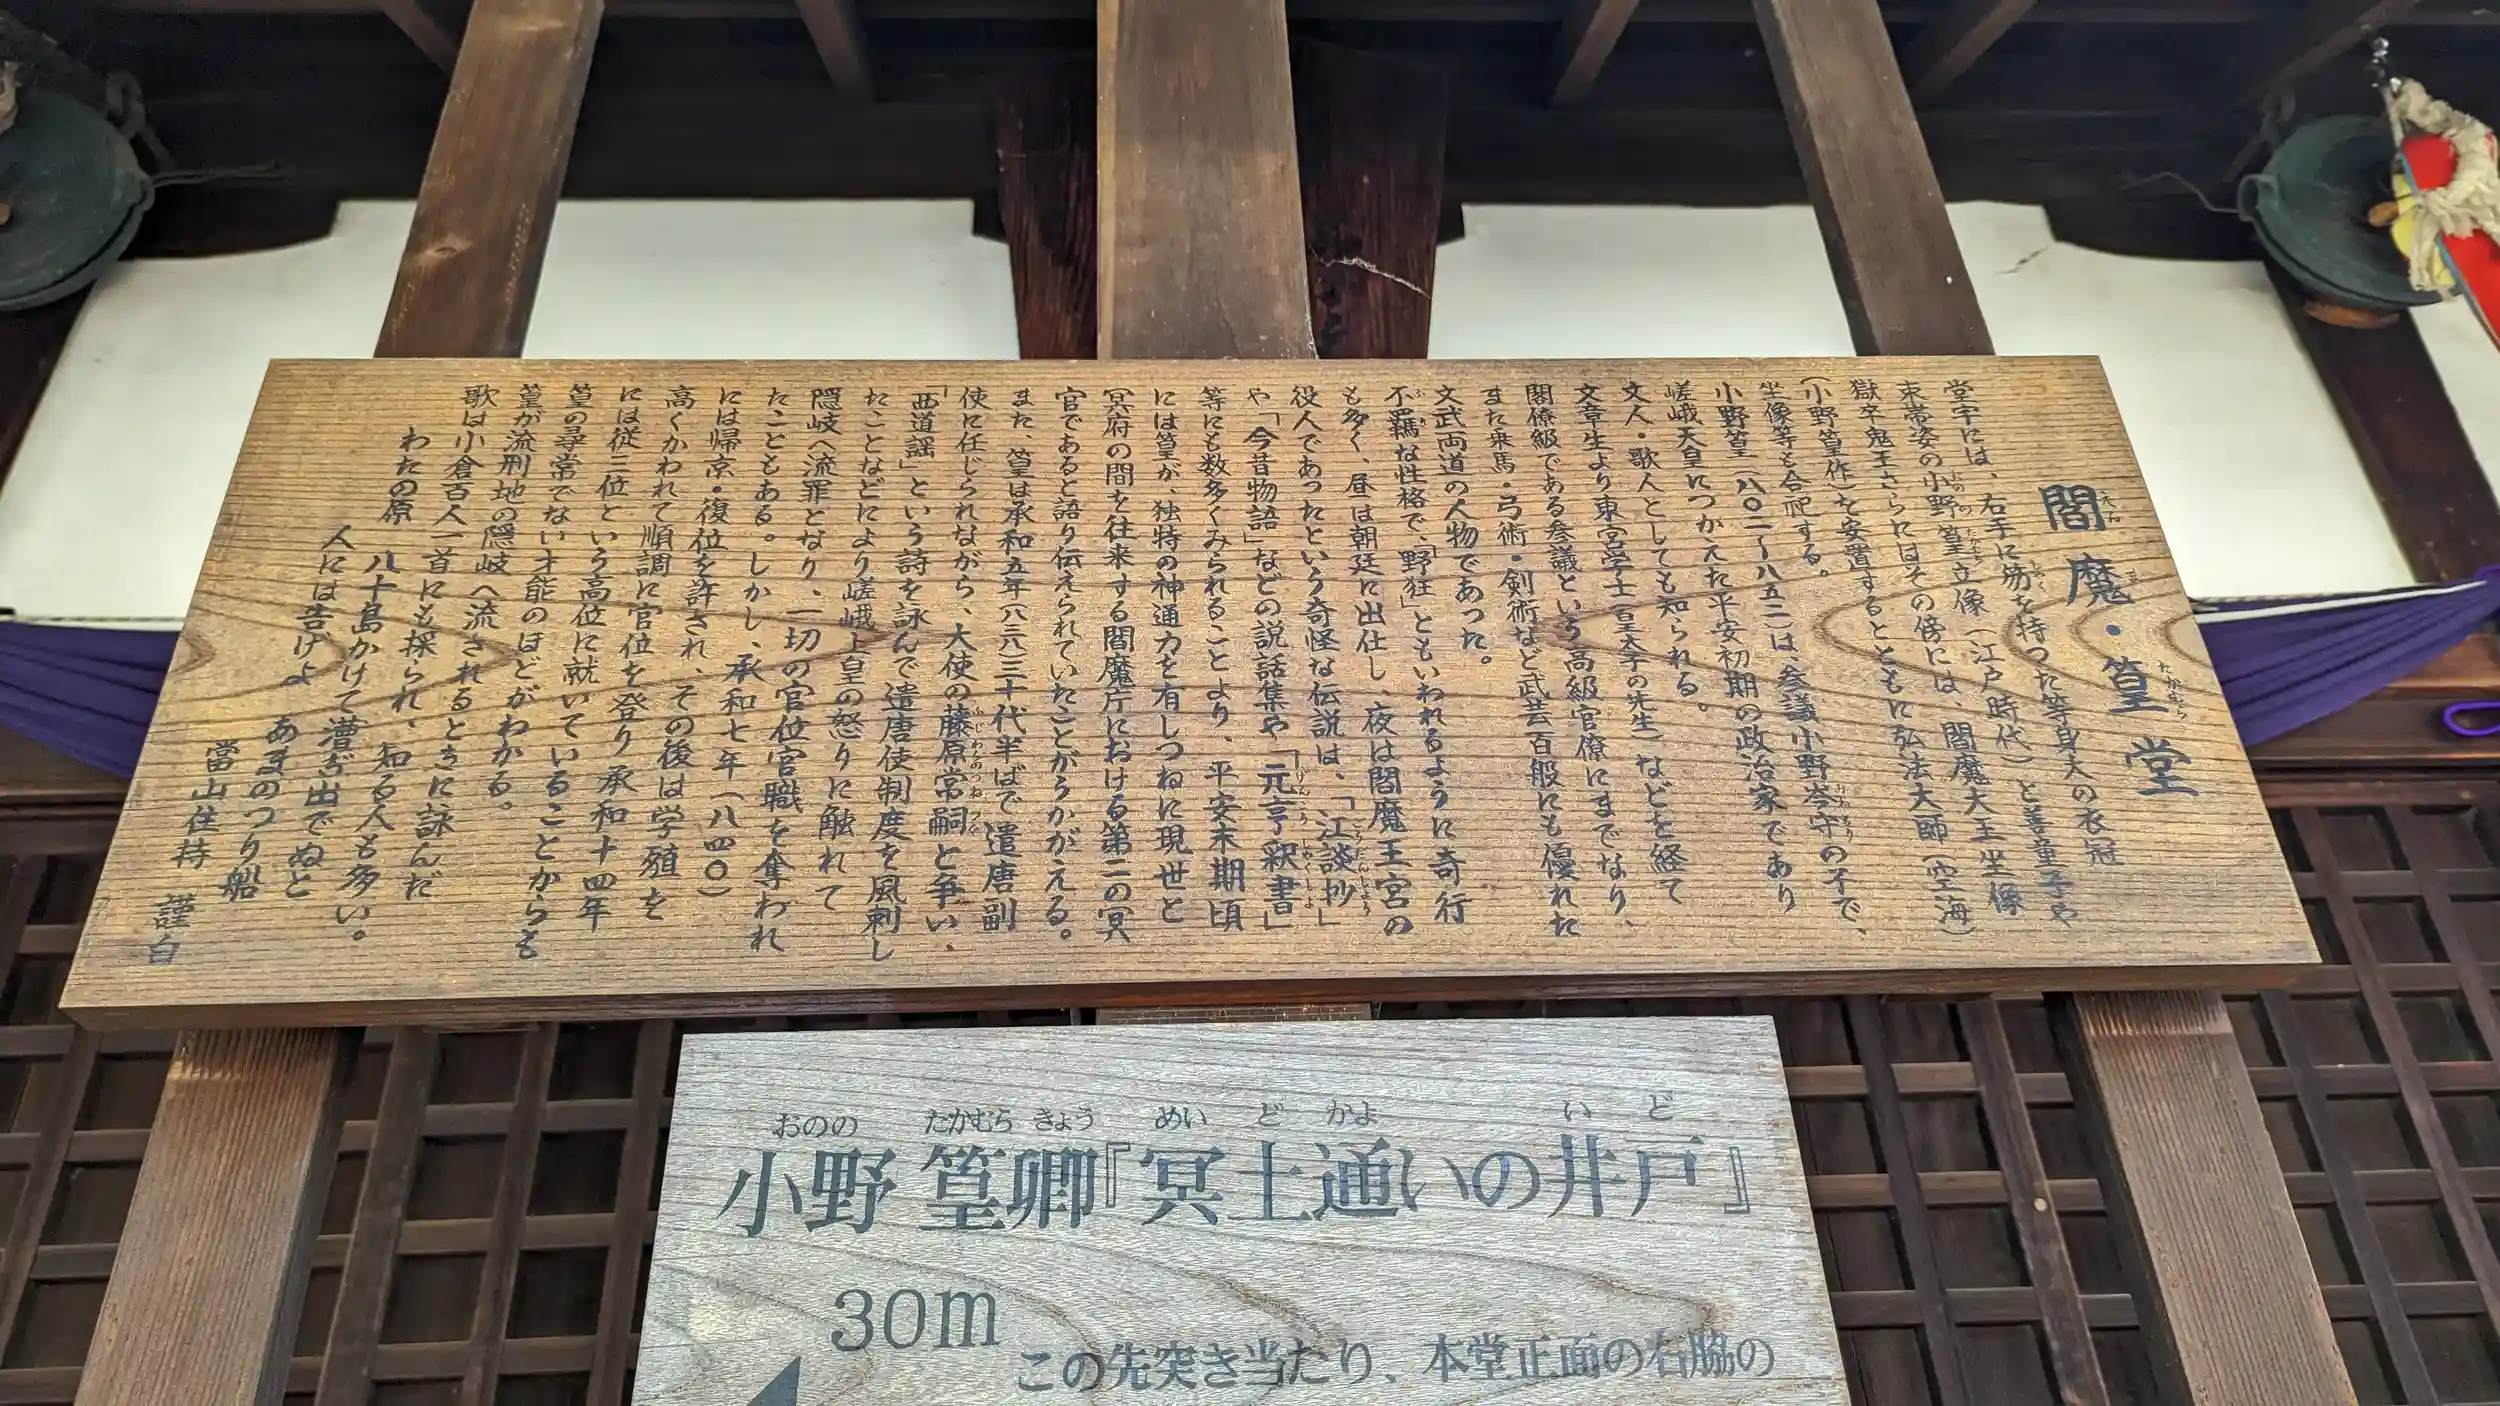 閻魔・篁堂
堂宇には、右手に笏を持つた等身大の衣冠
束帯姿の小野篁立像（江戸時代）と善童子や
獄卒鬼王さらにはその傍には、閻魔大王坐像
（小野篁作）を安置するとともに弘法大師（空海）
坐像等も合祀する。
小野篁（八〇二〜八五二）は、参議小野岑守の子で、
嵯峨天皇につかえた平安初期の政治家であり
文人・歌人としても知られる。
文章生より東宮学士（皇太子の先生）などを経て
閣僚級である参議という高級官僚にまでなり、
また乗馬・弓術・剣術など武芸百般にも優れた
文武両道の人物であった。
不羈な性格で、「野狂」ともいわれるように奇行
も多く、昼は朝廷に出仕し、夜は閻魔王宮の
役人であったという奇怪な伝説は、「江談抄」
や「今昔物語」などの説話集や「元亨釈書」
等にも数多くみられることより、平安末期頃
には篁が、独特の神通力を有しつねに現世と
冥府の間を往来する閻魔庁における第二の冥
官であると語り伝えられていたことがうかがえる。
また、篁は承和五年（八三八）三十代半ばで遣唐副
使に任じられながら、大使の藤原常嗣と争い、
「西道謡」という詩を詠んで遣唐使制度を風刺し
たことなどにより嵯峨上皇の怒りに触れて
隠岐へ流罪となり、一切の官位官職を奪われ
たこともある。しかし、承和七年（八四〇）
には帰京・復位を許され、その後は学殖を
高くかわれて順調に官位を登り承和十四年
には従三位という高位に就いていることからも
篁の尋常でない才能のほどがわかる。
篁が流刑地の隠岐へ流されるときに詠んだ
歌は小倉百人一首にも採られ、知る人も多い。
わたの原 八十島かけて漕ぎ出でぬと
人には告げよ あまのつり船
當山住持 謹白
おのの たかむら きょう めい ど かよ い ど
小野 篁卿『冥土通いの井戸』
30m
この先突き当たり、本堂正面の右脇の